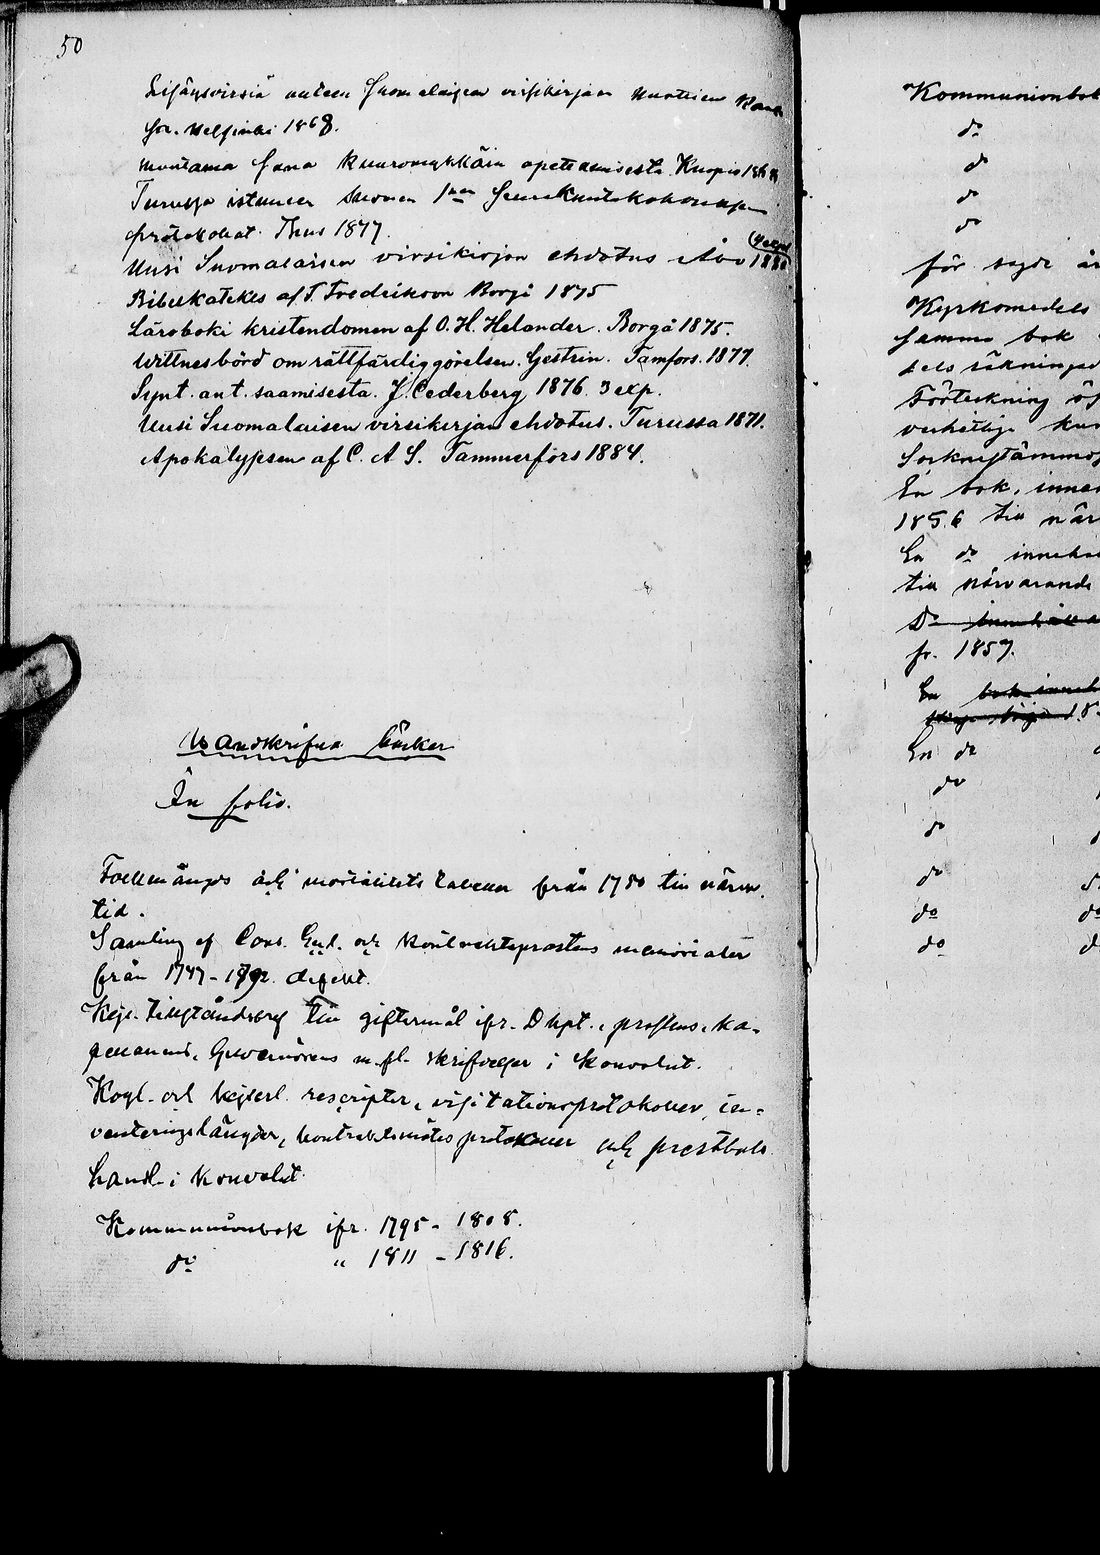 50
Lisäysvirsiä uuteen Suomalaisen virsikirjan nuottien
Helsinki 1868.
Muutama Sana kuuromykkäin opettamisesta. Kuopio 186
Turussa istuneen Suomen 1sen
protokollat. Turus 1877.
Uusi Suomalaisen virsikirjan ehdotus Åbo 1880
Bibelkatekes af T. Fredrikson Borgå 1875
Lärobok i kristendomen af O. H. Helander. Borgå 1875.
Wittnesbörd om rättfärdiggörelsen. Gestrin. Tamfors. 1877.
Synt. ant. saamisesta. J. Cederberg 1876. 3 exp.
Uusi Suomalaisen virsikirjan ehdotus. Turussa 1871.
Apokalypsen af C. A S. Tammerfors 1884.
Handskrifna böcker
In folio.
Folkmängds och mortalitets tabeller från 1750 till närv.
tid.
Samling af Cons. och Kontraktsprostens memorialer
från 1747-1792. defekt.
till giftermål ifr. Dkpt., prostens, ka-
pellanens, Guvernörens m. fl. skrifvelser i Konvolut.
Kogl. och kejserl. rescripter, visitationsprotokoller, in-
venteringslängder, kontraktsmötes protokoller och prestbols
handl. i konvolut.
Kommunionbok ifr. 1795 - 1808.
do " 1811 - 1816.
Kommunionbok
do
do
do
do
för sagde år
Kyrkomedels
Samma bok
Förteckning öf
Sockenstämmo
En bok, inne
1856 till när
En do inneh
till närvarande
Do
fr. 1857.
En
En do
do
do
do
do
do